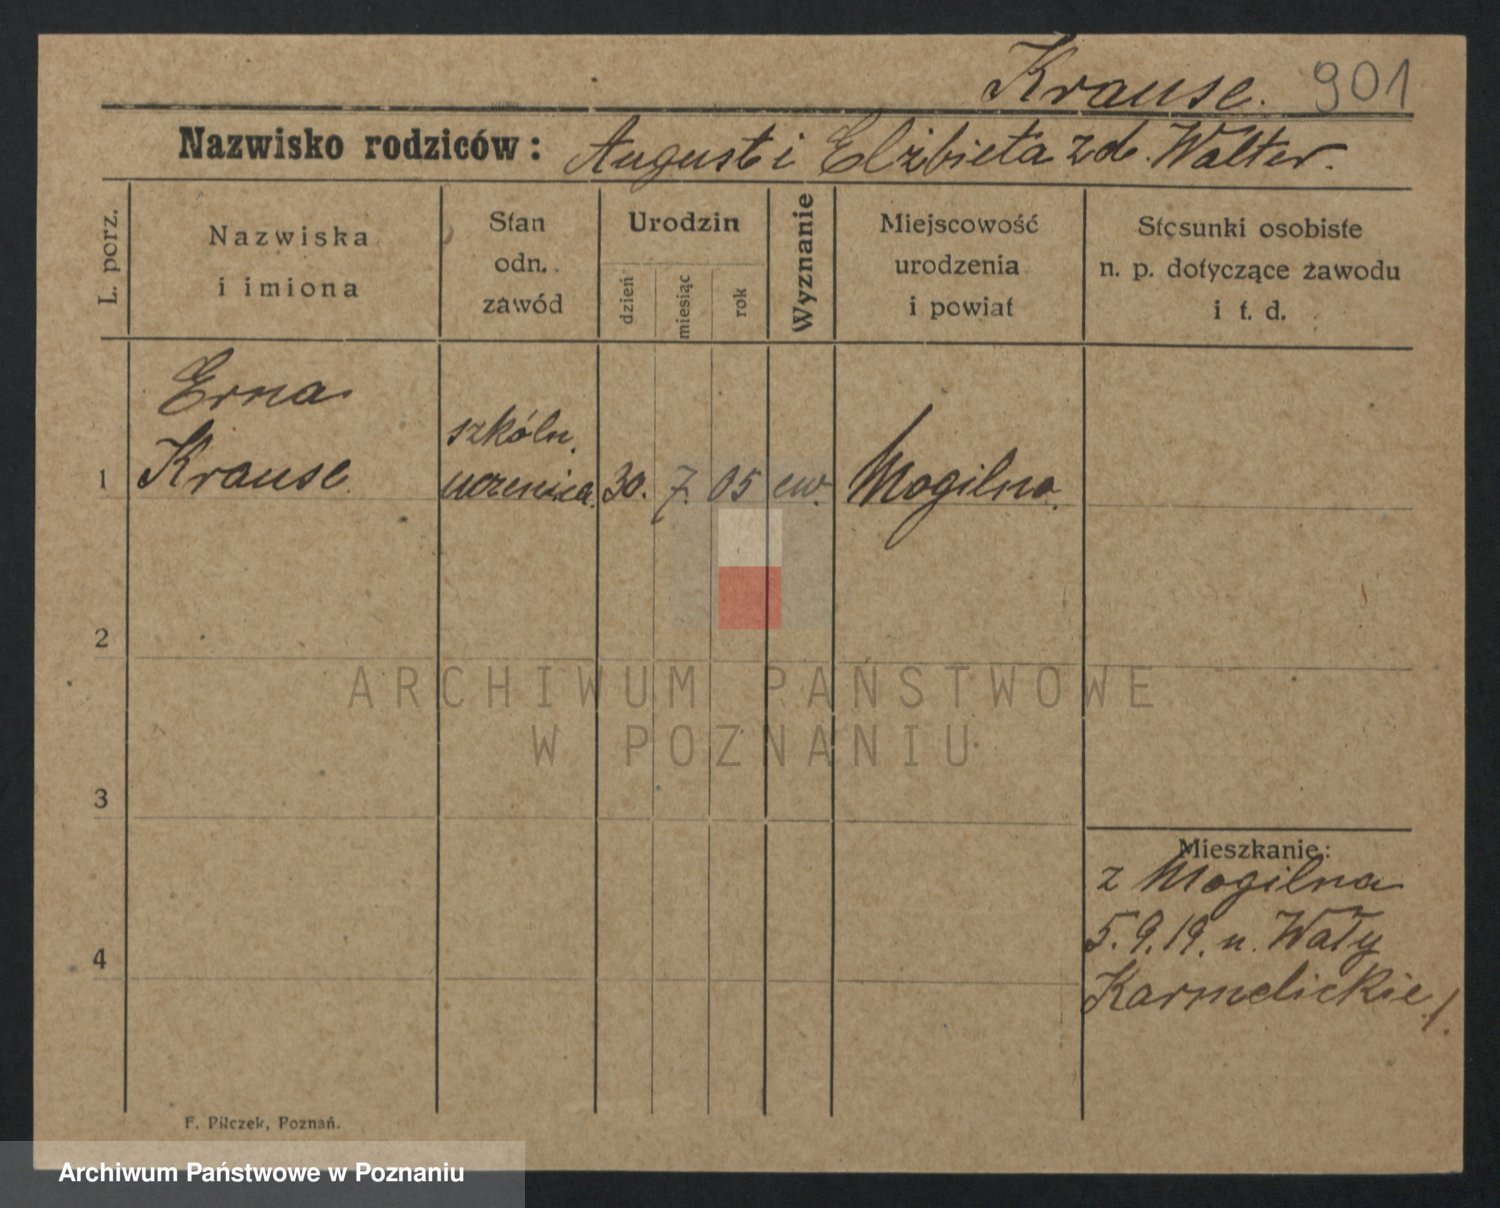 Krause. 901
Nazwisko rodziców: August i Elżbieta zd. Walter.
L. porz.
Nazwiska
i imiona
Stan
odn.
zawód
Urodzin
dzień
miesiąc
rok
Wyznanie
Miejscowość
urodzenia
i powiat
Stosunki osobiste
n. p. dotyczące zawodu
i t. d.
Erna
szkóln.
1 Krause uczenica. 30. 7. 05 ew. Mogilno.
2
ARCHIWUM PAŃSTWOWE
W POZNANIU
3
Mieszkanie:
z Mogilna
5.9.19. n. Wały
4
Karmelickie 1.
F. Pilczek, Poznań.
Archiwum Państwowe w Poznaniu